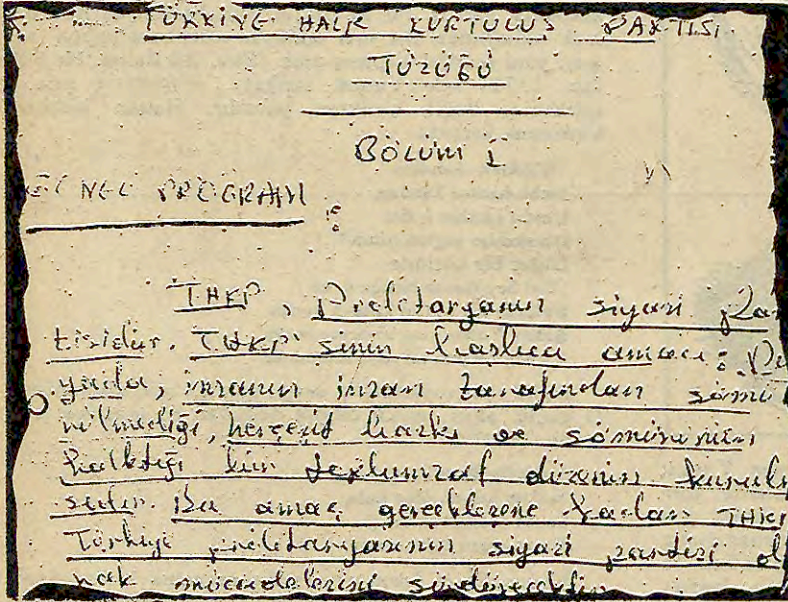 TÜRKİYE HALK KURTULUŞ PARTİSİ
TÜZÜĞÜ
BÖLÜM I
GENEL PROGRAM :
THKP, Proletaryanın siyasi par
tisidir. THKP'sinin başlıca amacı: Dü
yada, insanın insan tarafından sömü
rülmediği, herçeşit baskı ve sömürünün
kalktığı bir toplumsal düzenin kurulu
sudur. Bu amaç gerçeklesene kadar THKP
Türkiye proletaryasının siyasi partisi ol
rak mücadelesini sürdürecektir